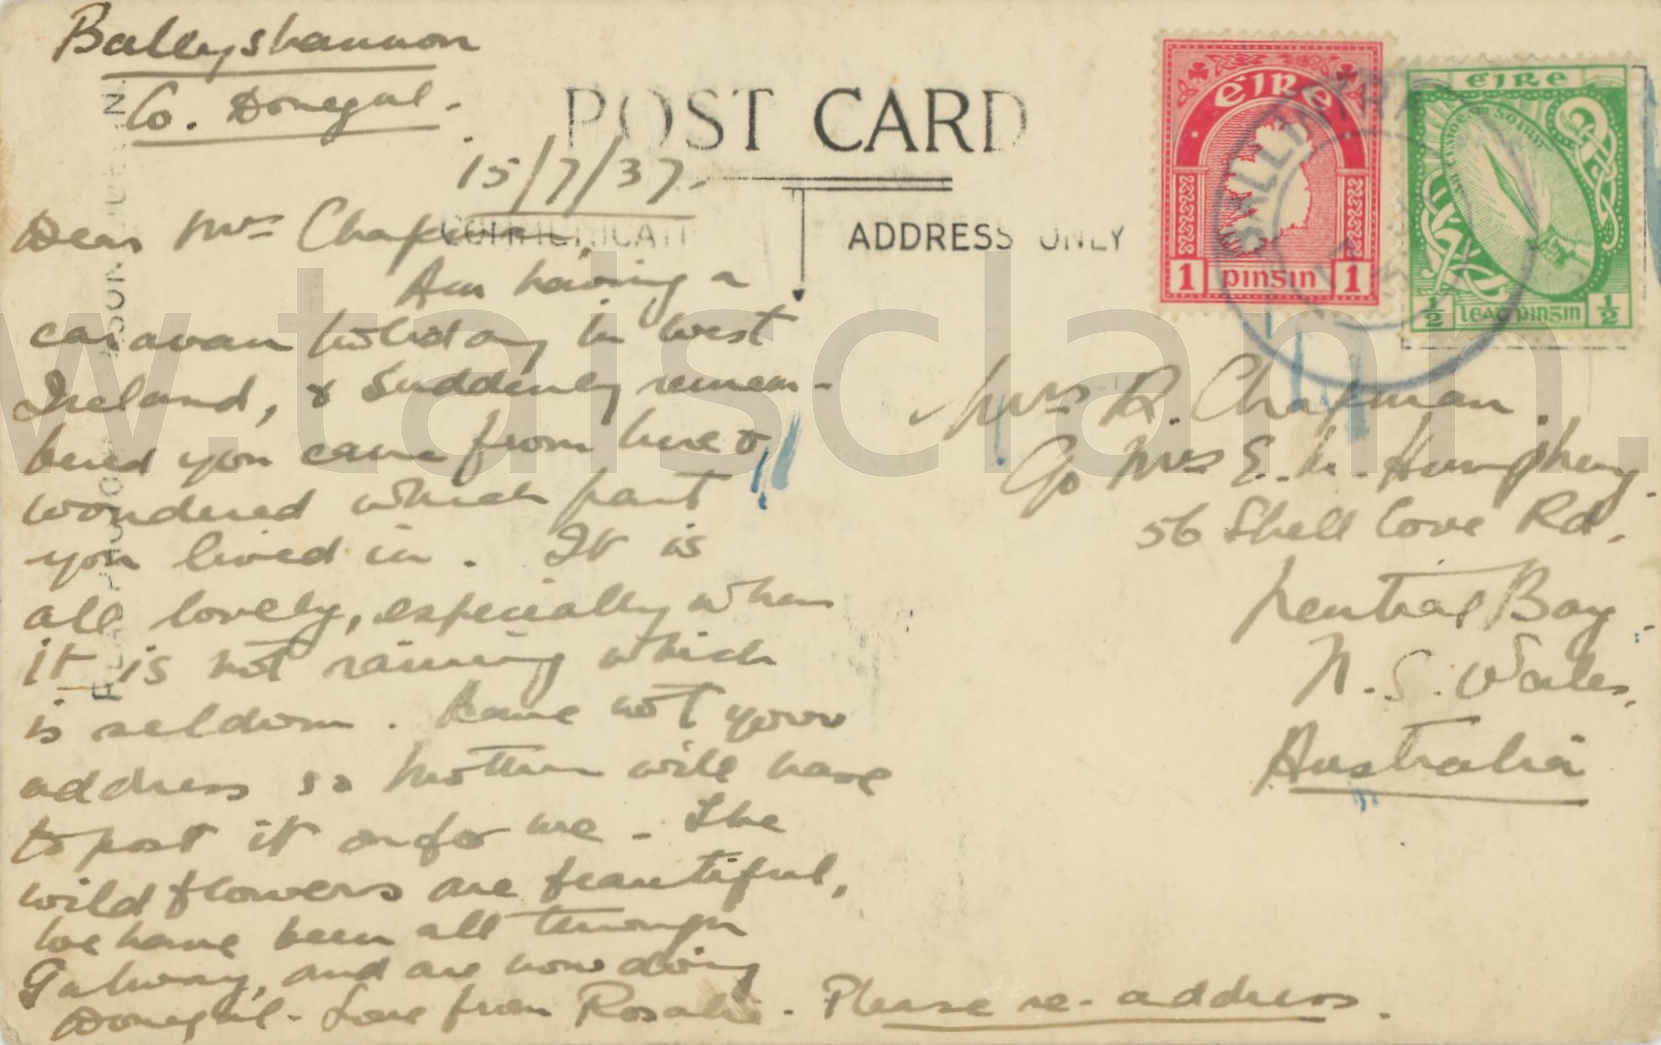 Ballyshannon
Co. Donegal.
POST CARD
15/7/37.
Dear Mrs Chapman,
ADDRESS ONLY
Am having a
caravan holiday in west
Ireland, & suddenly remem-
bered you came from here &
wondered which part
you lived in. It is
all lovely, especially when
it is not raining which
is seldom. Have not your
address so Mother will have
to post it on for me - The
wildflowers are beautiful,
We have been all through
Galway, and are now doing
Donegal - Love from Rosalie. Please re-address.
ÉIRE
1 PINSIN 1
ÉIRE
½ LEAT PINSIN ½
Mrs R. Chapman.
c/o Mrs E. M. Humphrey.
56 Shell Cove Rd,
Neutral Bay
N. S. Wales,
Australia
w.taisclann.